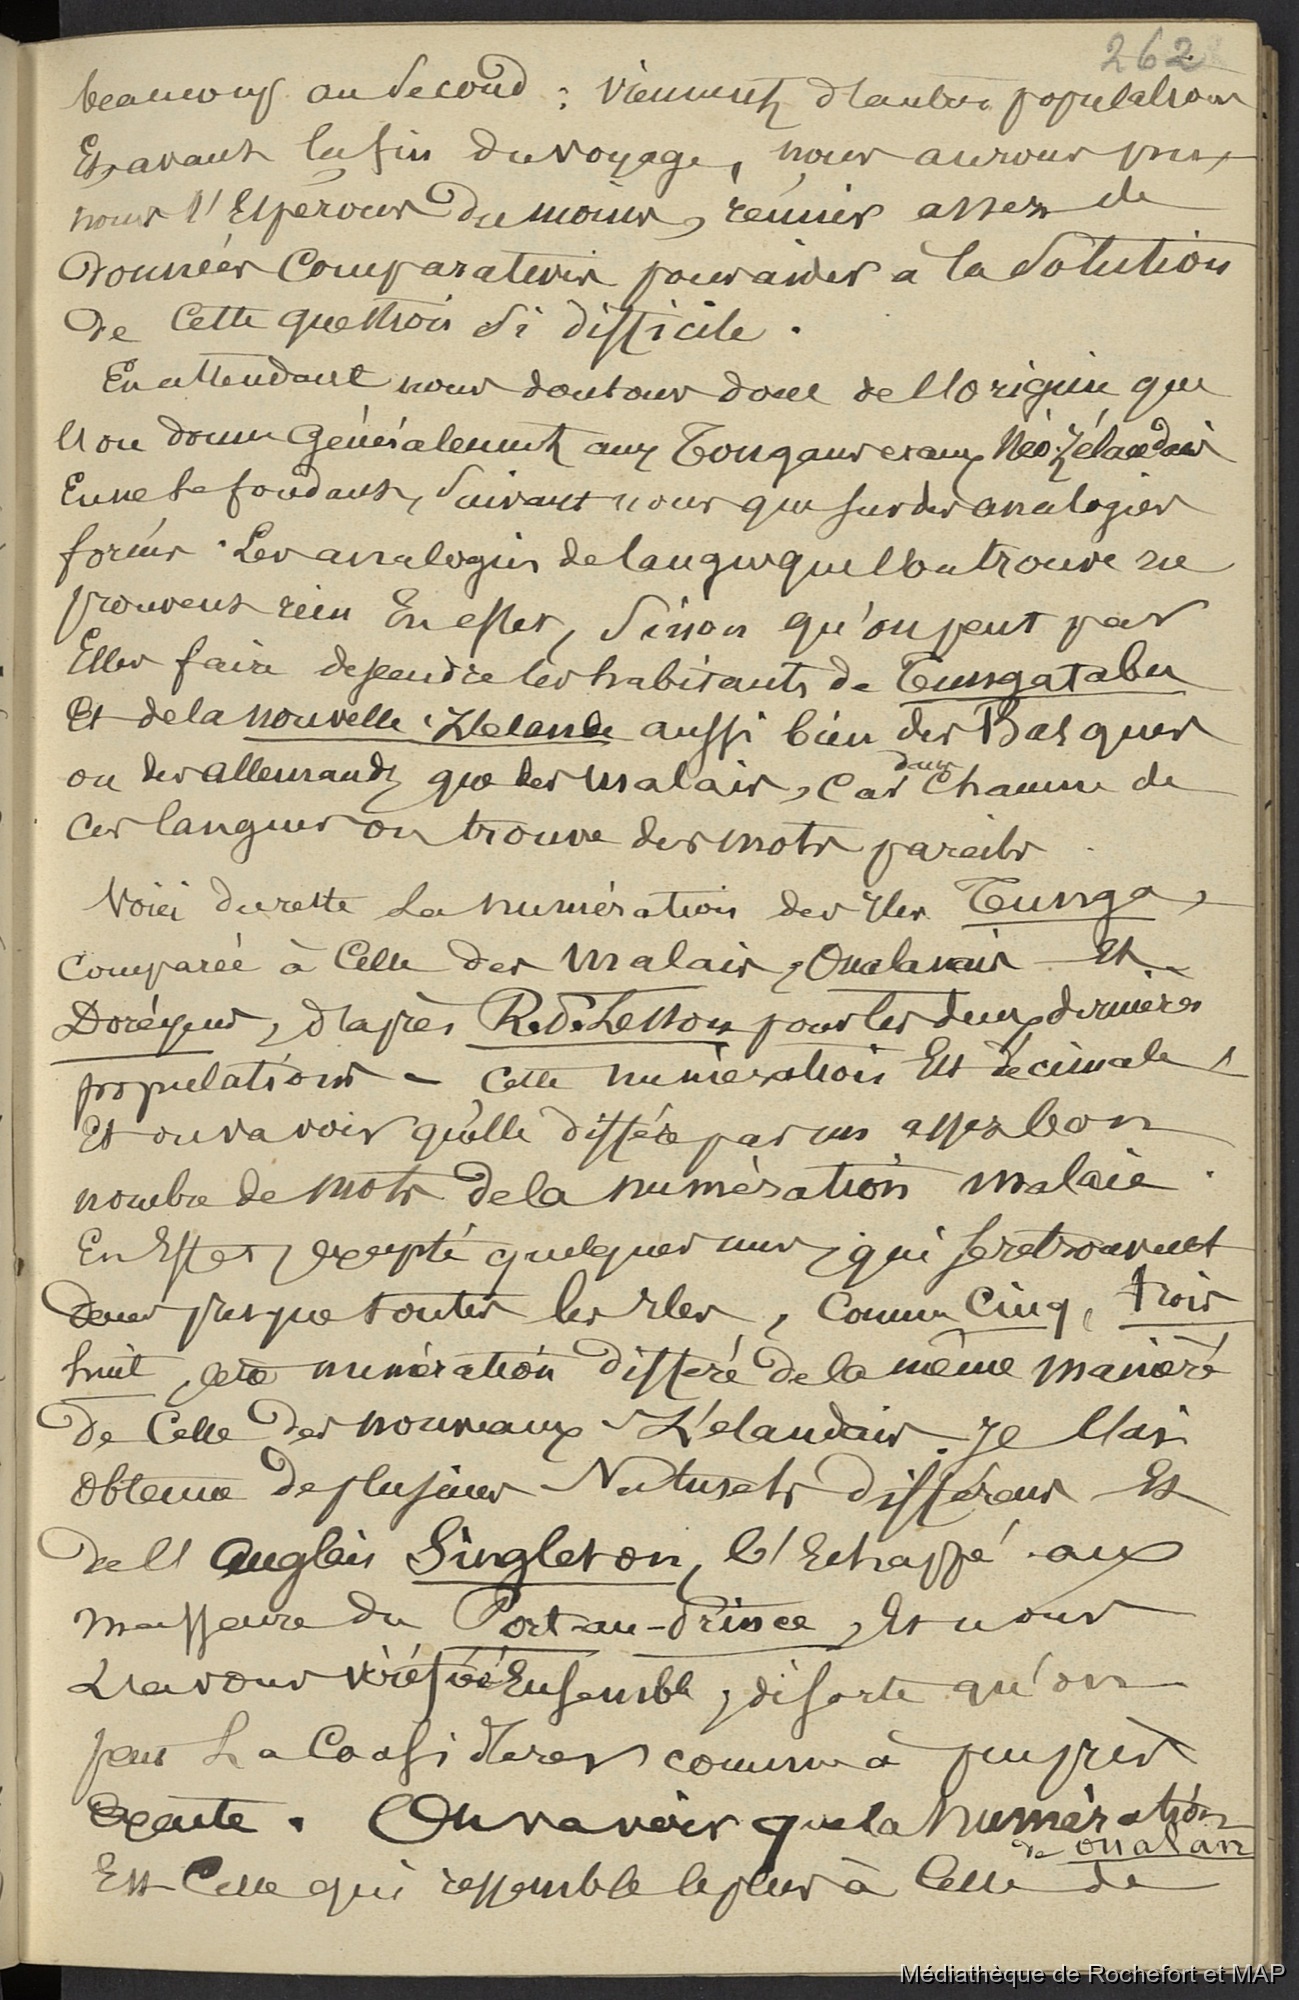 262
beaucoup au second : viennent d'autres populations
Et avant la fin du voyage, nous aurons pu,
nous l'Espérons Du moins, réunir assez de
Données Comparatives pour aider à la Solution
de Cette question Si difficile .
En attendant nous doutons donc de l'origine que
l'on donne Généralement aux Tongans et aux Néo-Zélandais
En ne se fondant, Suivant nous que sur des analogies
forcées . Les analogies de langues que l'on trouve ne
prouvent rien En effet, Sinon qu'on peut par
Elles faire descendre les habitants de Tungatabu
Et de la nouvelle Zélande aussi bien des Basques
ou des allemands que des Malais, Car dans Chacune de
Ces langues on trouve des mots pareils
Voici du reste la numération des Iles Tunga,
comparée à Celle des Malais, Oualanais Et
Doréyens, d'après R.P. Lesson pour les deux dernières
populations – Cette numération Est décimale,
Et on va voir qu'elle diffère par un assez bon
nombre de mots de la numération malaie .
En Effet, excepté quelques uns, qui se retrouvent
dans presque toutes les Iles, Comme Cinq, trois
huit, cette numération diffère de la même manière
de Celle des nouveaux-Zélandais. Je l'ai
obtenue de plusieurs Naturels différens Et
de l'anglais Singleton, l'Echappé aux
massacre du Port-au-Prince, Et nous
l'avons vérifiée Ensemble, de sorte qu'on
peut La Considérer comme à peu près
Exacte . On va voir que la Numération
de oualan
Est Celle qui ressemble le plus à Celle de
Médiathèque de Rochefort et MAP